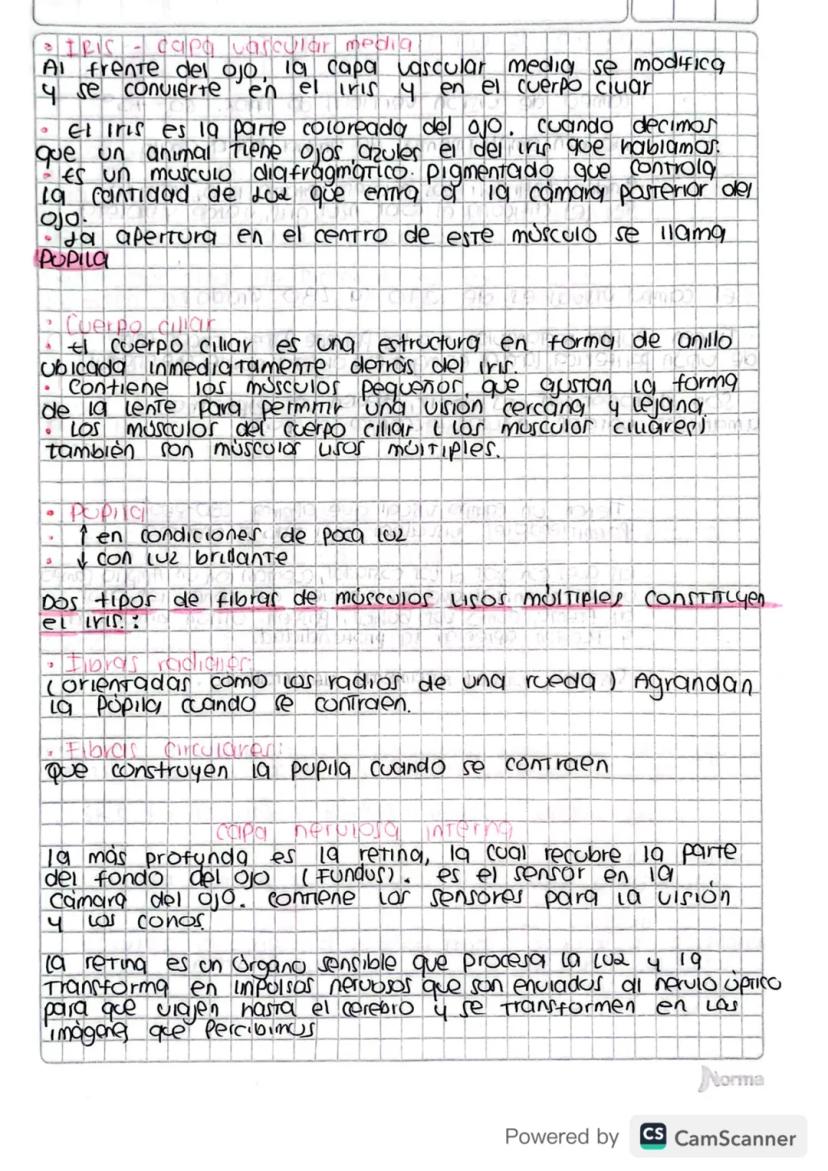 • IRIS - capa vascular media
Al frente del ojo, la capa vascular media se modifica
y se convierte en el iris y en el cuerpo ciliar
• El iris es la parte coloreada del ojo. cuando decimos
que un animal tiene ojos azules el del iris que hablamos.
• Es un musculo diafragmático. pigmentado que controla
la cantidad de luz que entra a la cámara posterior del
ojo.
• La apertura en el centro de este músculo se llama
PUPILA
• Cuerpo ciliar
• El cuerpo ciliar es una estructura en forma de anillo
ubicada inmediatamente detrás del iris.
• Contiene los músculos pequeños, que ajustan la forma
de la lente para permitir una visión cercana y lejana.
• Los músculos del cuerpo ciliar (los musculos ciliares)
también son músculos lisos múltiples.
• PUPILA
• ↑ en condiciones de poca luz
• ↓ con luz brillante
Dos tipos de fibras de músculos lisos múltiples constituyen
el iris. :
• Fibras radiales:
(orientadas como los radios de una rueda) Agrandan
la pupila cuando se contraen.
• Fibras Circulares:
que construyen la pupila cuando se contraen
capa nerviosa interna
la más profunda es la retina, la cual recubre la parte
del fondo del ojo (Fundus). es el sensor en la
cámara del ojo. contiene los sensores para la visión
y los conos.
La retina es un Órgano sensible que procesa la luz y la
transforma en impulsos nerviosos que son enviados al nervio óptico
para que viajen hasta el cerebro y se transformen en las
imágenes que percibimos
Norma
Powered by CS CamScanner